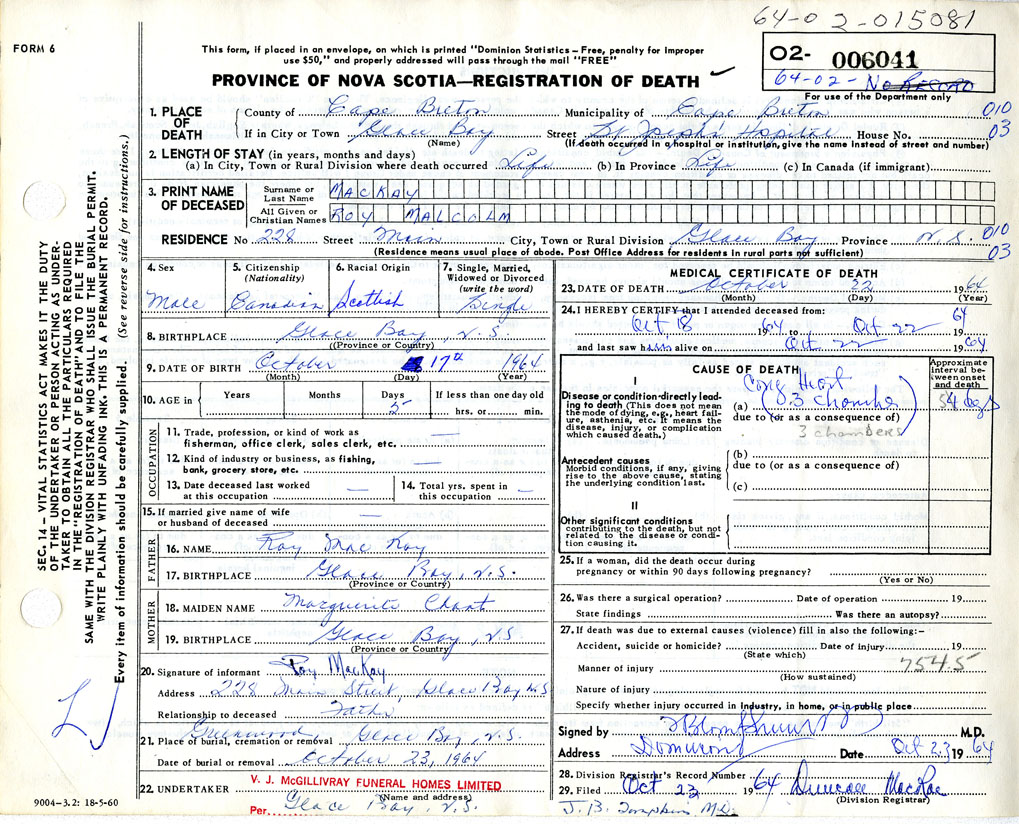 64-02-015081
FORM 6
This form, if placed in an envelope, on which is printed "Dominion Statistics – Free, penalty for improper
use $50," and properly addressed will pass through the mail "FREE"
PROVINCE OF NOVA SCOTIA—REGISTRATION OF DEATH ✓
O2- 006041
64-02- No Record
For use of the Department only
1. PLACE OF DEATH County of Cape Breton Municipality of Cape Breton 010
If in City or Town Glace Bay Street St Joseph's Hospital House No. 03
(Name) (If death occurred in a hospital or institution, give the name instead of street and number)
2. LENGTH OF STAY (in years, months and days)
(a) In City, Town or Rural Division where death occurred Life (b) In Province Life (c) In Canada (if immigrant)
3. PRINT NAME OF DECEASED Surname or Last Name MACKAY
All Given or Christian Names ROY MALCOLM
RESIDENCE No 228 Street Main City, Town or Rural Division Glace Bay Province N.S. 010
(Residence means usual place of abode. Post Office Address for residents in rural parts not sufficient) 03
4. Sex Male
5. Citizenship (Nationality) Canadian
6. Racial Origin Scottish
7. Single, Married, Widowed or Divorced (write the word) Single
8. BIRTHPLACE Glace Bay, N.S.
(Province or Country)
9. DATE OF BIRTH October 17th 1964
(Month) (Day) (Year)
10. AGE in Years Months Days 5 If less than one day old hrs. or min.
OCCUPATION
11. Trade, profession, or kind of work as
fisherman, office clerk, sales clerk, etc. —
12. Kind of industry or business, as fishing,
bank, grocery store, etc. —
13. Date deceased last worked at this occupation —
14. Total yrs. spent in this occupation —
15. If married give name of wife
or husband of deceased —
FATHER
16. NAME Roy MacKay
17. BIRTHPLACE Glace Bay, N.S.
(Province or Country)
MOTHER
18. MAIDEN NAME Marguerite Chant
19. BIRTHPLACE Glace Bay, N.S
(Province or Country)
20. Signature of informant Roy MacKay
Address 228 Main Street, Glace Bay N.S
Relationship to deceased Father
21. Place of burial, cremation or removal Greenwood, Glace Bay, N.S.
Date of burial or removal October 23, 1964
22. UNDERTAKER V. J. McGILLIVRAY FUNERAL HOMES LIMITED
(Name and address)
Per Glace Bay N.S.
MEDICAL CERTIFICATE OF DEATH
23. DATE OF DEATH October 22 1964
(Month) (Day) (Year)
24. I HEREBY CERTIFY that I attended deceased from:
Oct 18 1964 to Oct 22 1964
and last saw him alive on Oct 22 1964
CAUSE OF DEATH
Approximate interval between onset and death
I
Disease or condition directly leading to death (This does not mean the mode of dying, e.g., heart failure, asthenia, etc. It means the disease, injury, or complication which caused death.)
(a) Cong Heart
(3 chamber)
due to (or as a consequence of)
3 chambers
Antecedent causes
Morbid conditions, if any, giving rise to the above cause, stating the underlying condition last.
(b)
due to (or as a consequence of)
(c)
II
Other significant conditions
contributing to the death, but not related to the disease or condition causing it.
25. If a woman, did the death occur during
pregnancy or within 90 days following pregnancy?
(Yes or No)
26. Was there a surgical operation? Date of operation 19
State findings Was there an autopsy?
27. If death was due to external causes (violence) fill in also the following:–
Accident, suicide or homicide? Date of injury 19
(State which) 7545
Manner of injury
(How sustained)
Nature of injury
Specify whether injury occurred in industry, in home, or in public place
Signed by M.D.
Address Dominion Date Oct 23 1964
28. Division Registrar's Record Number
29. Filed Oct 23 1964 Duncan MacRae
(Division Registrar)
J. B. Tompkins M.D.
SEC. 14 – VITAL STATISTICS ACT MAKES IT THE DUTY
OF THE UNDERTAKER OR PERSON ACTING AS UNDER-
TAKER TO OBTAIN ALL THE PARTICULARS REQUIRED
IN THE "REGISTRATION OF DEATH" AND TO FILE THE
SAME WITH THE DIVISION REGISTRAR WHO SHALL ISSUE THE BURIAL PERMIT.
WRITE PLAINLY WITH UNFADING INK. THIS IS A PERMANENT RECORD.
Every item of information should be carefully supplied. (See reverse side for instructions.)
9004–3.2: 18-5-60